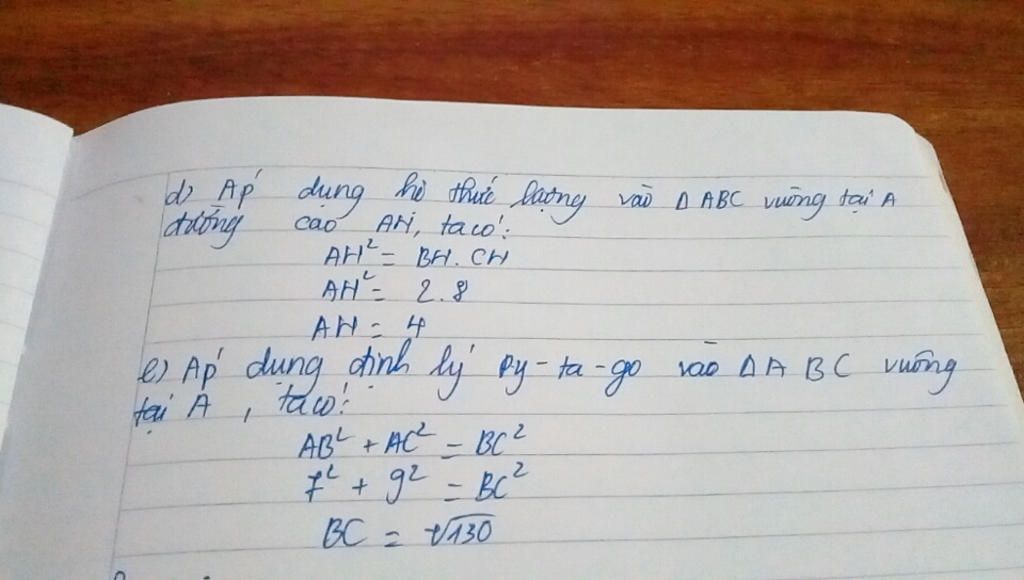 d) Áp dụng hệ thức lượng vào Δ ABC vuông tại A
đường cao AH, ta có:
AH² = BH. CH
AH² = 2.8
AH = 4
e) Áp dụng định lý Py-ta-go vào Δ A BC vuông
tại A, ta có:
AB² + AC² = BC²
7² + 9² = BC²
BC = √130